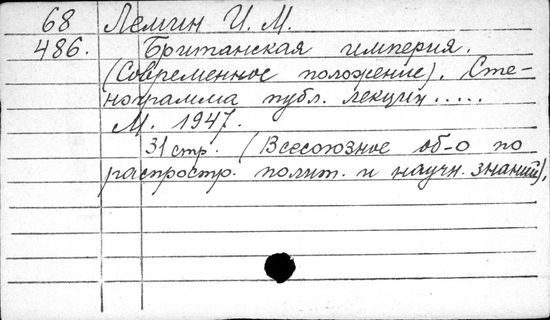 68 Лемин И. М.
486. Британская империя.
(Современное положение). Сте-
нограмма публ. лекции.....
М. 1947.
31 стр. (Всесоюзное об-о по
распростр. полит. и научн. знаний).